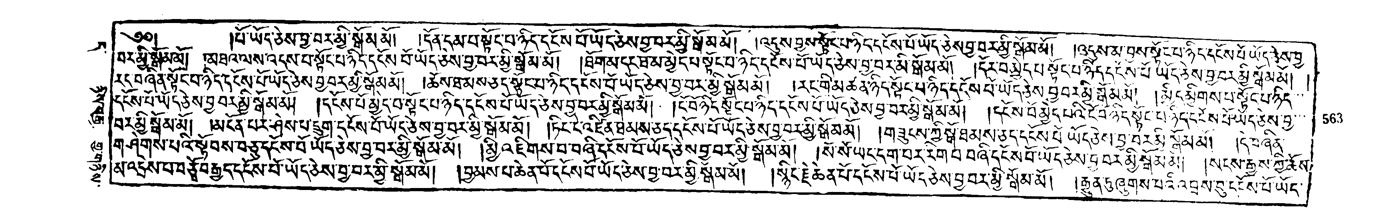 ༄༅། །པོ་ཡོད་ཅེས་བྱ་བར་མྱི་སྒོམ་མོ། །དོན་དམ་པ་སྟོང་པ་ཉིད་དངོས་པོ་ཡོད་ཅེས་བྱ་བར་མྱི་སྒོམ་མོ། །འདུས་བྱས་སྟོང་པ་ཉིད་དངོས་པོ་ཡོད་ཅེས་བྱ་བར་མྱི་སྒོམ་མོ། །འདུས་མ་བྱས་སྟོང་པ་ཉིད་དངོས་པོ་ཡོད་ཅེས་བྱ་
བར་མྱི་སྒོམ་མོ། །མཐའ་ལས་འདས་པ་སྟོང་པ་ཉིད་དངོས་པོ་ཡོད་ཅེས་བྱ་བར་མྱི་སྒོམ་མོ། །ཐོག་མ་དང་ཐ་མ་མྱེད་པ་སྟོང་པ་ཉིད་དངོས་པོ་ཡོད་ཅེས་བྱ་བར་མྱི་སྒོམ་མོ། །དོར་བ་མྱེད་པ་སྟོང་པ་ཉིད་དངོས་པོ་ཡོད་ཅེས་བྱ་བར་མྱི་སྒོམ་མོ། །
རང་བཞིན་སྟོང་པ་ཉིད་དངོས་པོ་ཡོད་ཅེས་བྱ་བར་མྱི་སྒོམ་མོ། །ཆོས་ཐམས་ཅད་སྟོང་པ་ཉིད་དངོས་པོ་ཡོད་ཅེས་བྱ་བར་མྱི་སྒོམ་མོ། །རང་གི་མཚན་ཉིད་སྟོང་པ་ཉིད་དངོས་པོ་ཡོད་ཅེས་བྱ་བར་མྱི་སྒོམ་མོ། །མྱི་དམྱིགས་པ་སྟོང་པ་ཉིད་
དངོས་པོ་ཡོད་ཅེས་བྱ་བར་མྱི་སྒོམ་མོ། །དངོས་པོ་མྱེད་པ་སྟོང་པ་ཉིད་དངོས་པོ་ཡོད་ཅེས་བྱ་བར་མྱི་སྒོམ་མོ། །ངོ་བོ་ཉིད་སྟོང་པ་ཉིད་དངོས་པོ་ཡོད་ཅེས་བྱ་བར་མྱི་སྒོམ་མོ། །དངོས་པོ་མྱེད་པའི་ངོ་བོ་ཉིད་སྟོང་པ་ཉིད་དངོས་པོ་ཡོད་ཅེས་བྱ་
བར་མྱི་སྒོམ་མོ། །མངོན་བར་ཤེས་པ་དྲུག་དངོས་པོ་ཡོད་ཅེས་བྱ་བར་མྱི་སྒོམ་མོ། །ཏིང་ངེ་འཛིན་ཐམས་ཅད་དངོས་པོ་ཡོད་ཅེས་བྱ་བར་མྱི་སྒོམ་མོ། །གཟུངས་ཀྱི་སྒོ་ཐམས་ཅད་དངོས་པོ་ཡོད་ཅེས་བྱ་བར་མྱི་སྒོམ་མོ། །དེ་བཞིན་
གཤེགས་པའི་སྟོབས་བཅུ་དངོས་པོ་ཡོད་ཅེས་བྱ་བར་མྱི་སྒོམ་མོ། །མྱི་འཇིགས་པ་བཞི་དངོས་པོ་ཡོད་ཅེས་བྱ་བར་མྱི་སྒོམ་མོ། །སོ་སོ་ཡང་དག་པར་རིག་པ་བཞི་དངོས་པོ་ཡོད་ཅེས་བྱ་བར་མྱི་སྒོམ་མོ། །སངས་རྒྱས་ཀྱི་ཆོས་
མ་འདྲེས་པ་བཅོ་བརྒྱད་དངོས་པོ་ཡོད་ཅེས་བྱ་བར་མྱི་སྒོམ་མོ། །བྱམས་པ་ཆེན་པོ་དངོས་པོ་ཡོད་ཅེས་བྱ་བར་མྱི་སྒོམ་མོ། །སྙིང་རྗེ་ཆེན་པོ་དངོས་པོ་ཡོད་ཅེས་བྱ་བར་མྱི་སྒོམ་མོ། །རྒྱུན་དུ་ཞུགས་པའི་འབྲས་བུ་དངོས་པོ་ཡོད་
563